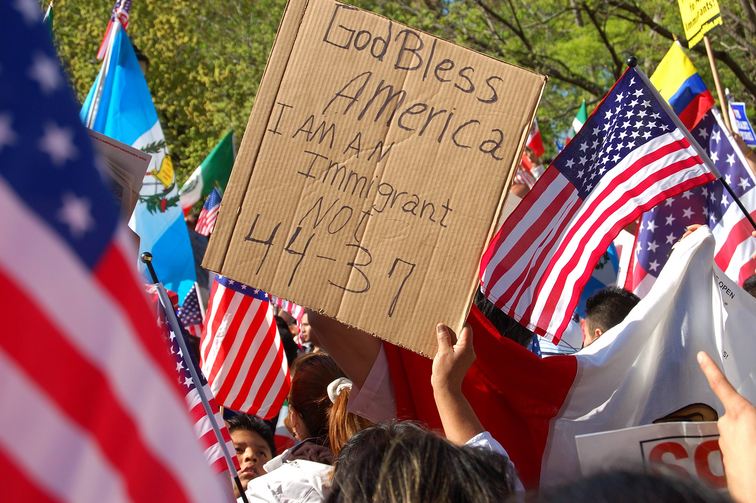 God Bless
America
I AM AN
Immigrant
NOT
44-37
OPEN